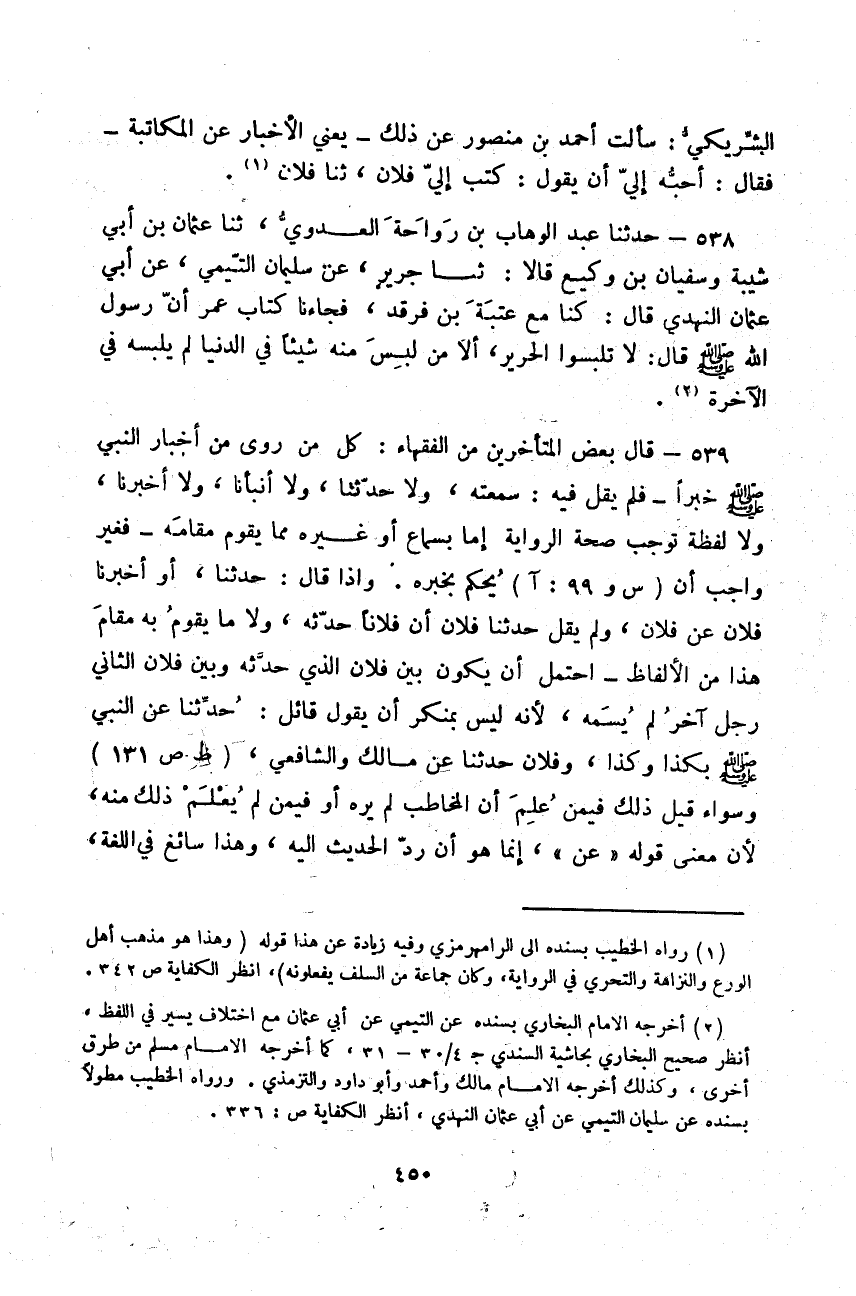 البشَّريكيُّ : سألت أحمد بن منصور عن ذلك – يعني الأخبار عن المكاتبة –
فقال : أحبُّه إليّ أن يقول : كتب إليّ فلان ، ثنا فلان (١) .
٥٣٨ – حدثنا عبد الوهاب بن رَواحَة العــدويُّ ، ثنا عثمان بن أبي
شيبة وسفيان بن وكيـع قالا : ثنـــا جرير ، عن سليمان التّيمي ، عن أبي
عثمان النهدي قال : كنا مع عتبَة بن فرقد ، فجاءنا كتاب عمر أنّ رسول
الله ﷺ قال: لا تلبسوا الحرير، ألا من لبِسَ منه شيئاً في الدنيا لم يلبسه في
الآخرة (٢) .
٥٣٩ – قال بعض المتأخرين من الفقهاء : كل من روى من أخبار النبي
ﷺ خبراً – فلم يقل فيه : سمعته ، ولا حدّثنا ، ولا أنبأنا ، ولا أخبرنا ،
ولا لفظة توجب صحة الرواية إما بسماع أو غـــيره مما يقوم مقامَه – فغير
واجب أن ( س و ٩٩ : آ ) يُحكم بخبره . واذا قال : حدثنا ، أو أخبرنا
فلان عن فلان ، ولم يقل حدثنا فلان أن فلاناً حدّثه ، ولا ما يقومُ به مقامَ
هذا من الألفاظ – احتمل أن يكون بين فلان الذي حدَّثه وبين فلان الثاني
رجل آخرُ لم يُسَمه ، لأنه ليس بمنكر أن يقول قائل : حُدِّثنا عن النبي
ﷺ بكذا وكذا ، وفلان حدثنا عن مـالك والشافعي ، ( ظ ص ١٣١ )
وسواء قيل ذلك فيمن عُلِمَ أن المخاطب لم يره أو فيمن لم يُعْلَمْ ذلك منه،
لأن معنى قوله « عن » ، إنما هو أن ردّ الحديث اليه ، وهذا سائغ في اللغة،
(١) رواه الخطيب بسنده الى الرامهرمزي وفيه زيادة عن هذا قوله ( وهذا هو مذهب أهل
الورع والنزاهة والتحري في الرواية، وكان جماعة من السلف يفعلونه)، انظر الكفاية ص ٣٤٢ .
(٢) أخرجه الامام البخاري بسنده عن التيمي عن أبي عثمان مع اختلاف يسير في اللفظ ،
أنظر صحيح البخاري بحاشية السندي جـ ٣٠/٤ – ٣١ ، كما أخرجه الامــام مسلم من طرق
أخرى ، وكذلك أخرجه الامــام مالك وأحمد وأبو داود والترمذي . ورواه الخطيب مطولاً
بسنده عن سليمان التيمي عن أبي عثمان النهدي ، أنظر الكفاية ص : ٣٣٦ .
٤٥٠